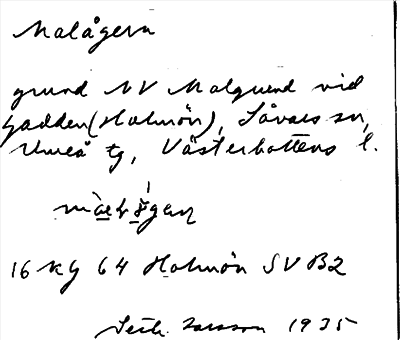 Malågern
grund NV Malgrund vid
Gadden (Holmön), Sävars sn,
Umeå tg, Västerbottens l.
16 Kg 64 Holmön SV B2
Larsson 1935